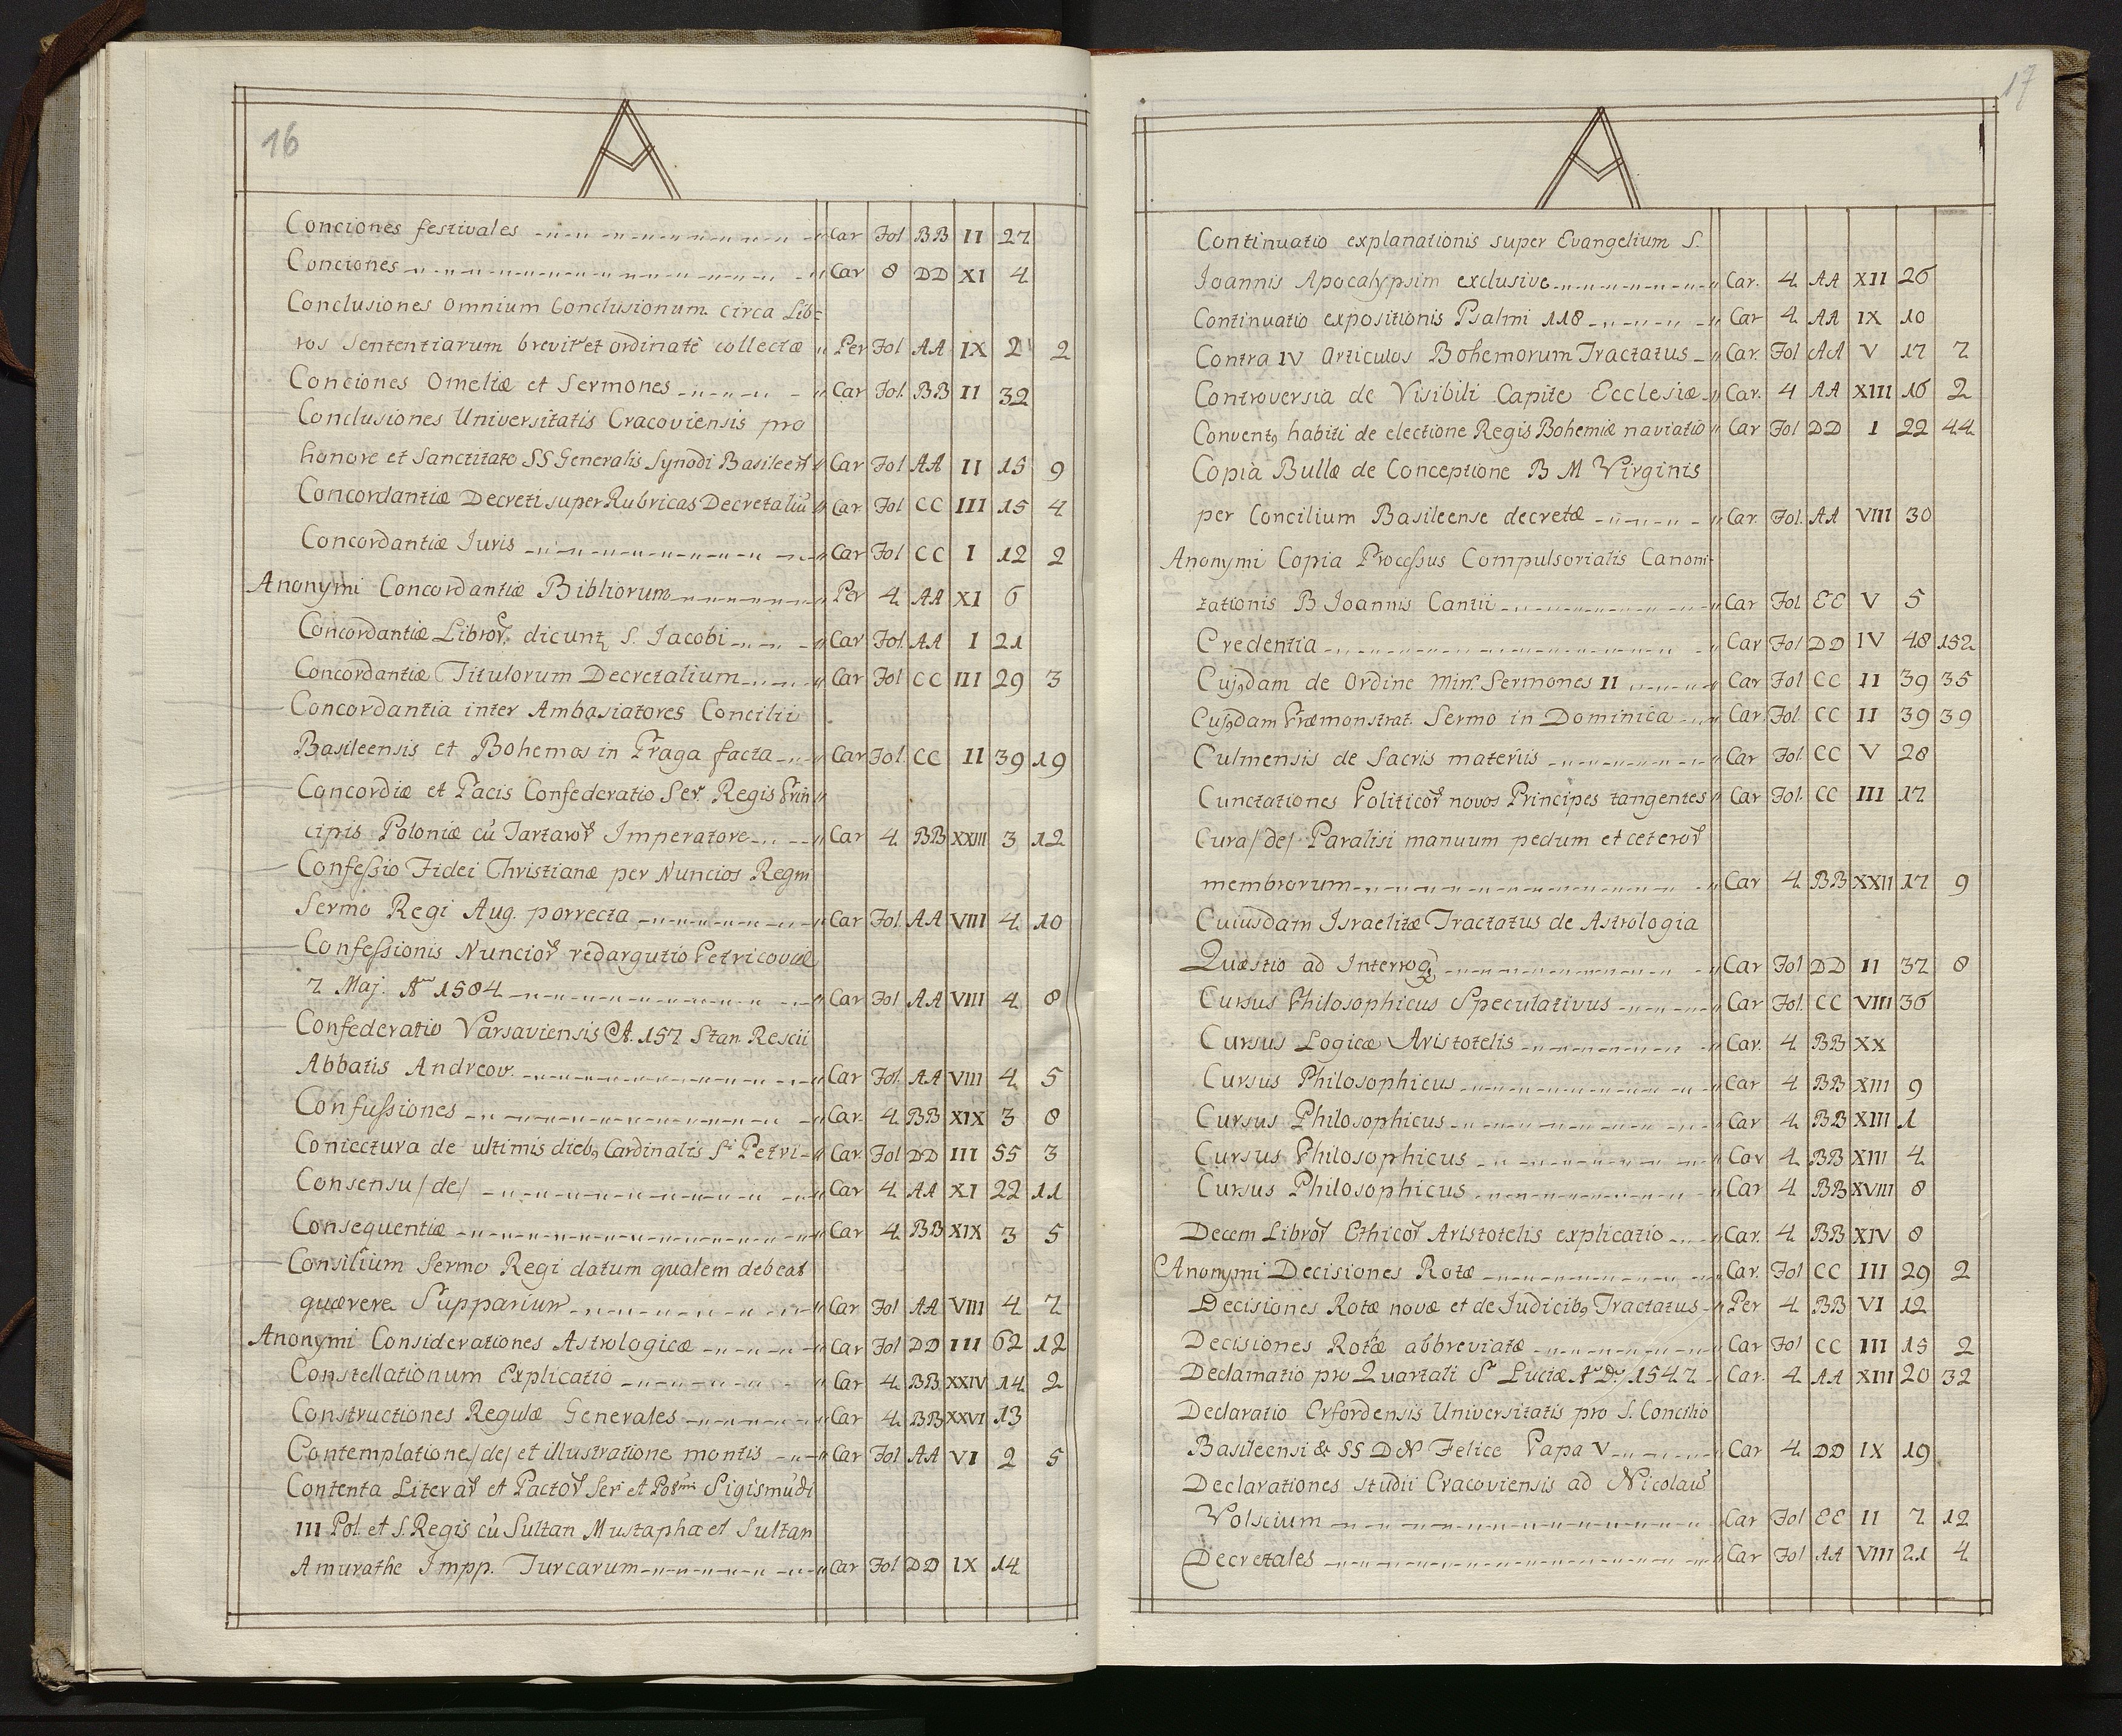 16
A
Conciones festivales Car Fol BB II 27
Conciones Car 8 DD XI 4
Conclusiones omnium Conclusionum circa Lib=
ros Sententiarum brevit^r et ordinatè collectæ Per Fol AA IX 2 2
Conciones Omeliæ et Sermones Car Fol. BB II 32
Conclusiones Universitatis Cracoviensis pro
honore et Sanctitate SS Generalis Synodi Basileen Car Fol AA II 15 9
Concordantiæ Decreti super Rubricas Decretaliū Car Fol CC III 15 4
Concordantiæ Iuris Car Fol CC I 12 2
Anonymi Concordantiæ Bibliorum Per 4 AA XI 6
Concordantiæ Libror. dicunt S. Iacobi Car Fol. AA I 21
Concordantiæ Titulorum Decretalium Car Fol CC III 29 3
Concordantia inter Ambasiatores Concilii
Basileensis et Bohemos in Praga facta Car Fol. CC II 39 19
Concordiæ et Pacis Confederatio Ser. Regis Prin
cipis Poloniæ cū Tartaror Imperatore Car 4 BB XXIII 3 12
Confessio Fidei Christianæ per Nuncios Regni
Sermo Regi Aug. porrecta Car Fol. AA VIII 4 10
Confessionis Nuncior redargutio Petricoviæ
7 Maj. Aº 1584 Car Fol AA VIII 4 8
Confederatio Varsaviensis A. 157 Stan Rescii
Abbatis Andreov. Car Fol. AA VIII 4 5
Confussiones Car 4 BB XIX 3 8
Coniectura de ultimis dieb9 Cardinalis Sᵗⁱ Petri Car. Fol DD III 55 3
Consensu /de/ Car 4 AA XI 22 11
Consequentiæ Car 4 BB XIX 3 5
Consilium Sermo Regi datum qualem debeat
quærere Supparium Car Fol AA VIII 4 7
Anonymi Considerationes Astrologicæ Car Fol DD III 62 12
Constellationum Explicatio Car 4 BB XXIV 14 2
Constructiones Regulæ Generales Car 4 BB XXVI 13
Contemplatione /de/ et illustratione montis Car Fol AA VI 2 5
Contenta Literar et Pactor Ser et Potmi Sigismūdi
III Pol. et S. Regis cū Sultan Mustapha et Sultan
Amurathe Impp. Turcarum Car Fol DD IX 14
17
A
Continuatio explanationis super Evangelium S.
Ioannis Apocalypsim exclusive Car. 4 AA XII 26
Continuatio expositionis Psalmi 118 Car 4 AA IX 10
Contra IV Articulos Bohemorum Tractatus Car. Fol AA V 17 7
Controversia de Visibili Capite Ecclesiæ Car. 4 AA XIII 16 2
Convent9 habiti de electione Regis Bohemiæ naviatio Car Fol DD I 22 44
Copia Bullæ de Conceptione B M Virginis
per Concilium Basileense decretæ Car. Fol. AA VIII 30
Anonymi Copia Processus Compulsorialis Canoni-
zationis B Ioannis Cantii Car Fol EE V 5
Credentia Car Fol DD IV 48 152
Cuj9dam de Ordine Min. Sermones II Car Fol CC II 39 35
Cuj9dam Præmonstrat. Sermo in Dominica Car. Fol. CC II 39 39
Culmensis de Sacris materiis Car Fol CC V 28
Cunctationes Politicor novos Principes tangentes Car Fol. CC III 17
Cura /de/ Paralisi manuum pedum et ceteror
membrorum Car 4 BB XXII 17 9
Cuiusdam Israelitæ Tractatus de Astrologia
Quæstio ad Interrog Car Fol DD II 37 8
Cursus Philosophicus Speculativus Car Fol. CC VIII 36
Cursus Logicæ Aristotelis Car. 4 BB XX
Cursus Philosophicus Car 4 BB XIII 9
Cursus Philosophicus Car 4 BB XIII 1
Cursus Philosophicus Car 4 BB XIII 4
Cursus Philosophicus Car 4 BB XVIII 8
Decem Libror Ethicor Aristotelis explicatio Car. 4 BB XIV 8
Anonymi Decisiones Rotæ Car. Fol CC III 29 2
Decisiones Rotæ novæ et de Iudicib9 Tractatus Per 4 BB VI 12
Decisiones Rotæ abbreviatæ Car Fol CC III 15 2
Declamatio pro Quartali Sᵗ Luciæ Aº Dⁱ 1547 Car. 4 AA XIII 20 32
Declaratio Erfordensis Universitatis pro S. Concilio
Basileensi & SS DN Felice Papa V Car 4 DD IX 19
Declarationes studii Cracoviensis ad Nicolaū
Volscium Car Fol EE II 7 12
Decretales Car Fol AA VIII 21 4